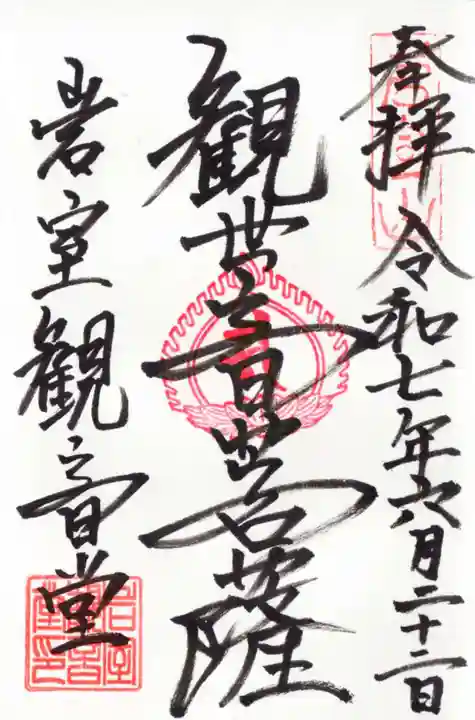 奉拝 令和七年六月二十二日
観世音菩薩
岩室観音堂